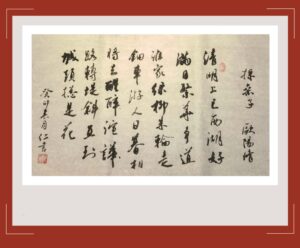 採桑子 歐陽修
清明上巳西湖好
滿目繁華爭道
誰家綠柳朱輪走
鈿車游人日暮相
將去醒醉喧譁
路轉堤斜直到
城頭總是花
癸卯 仁書